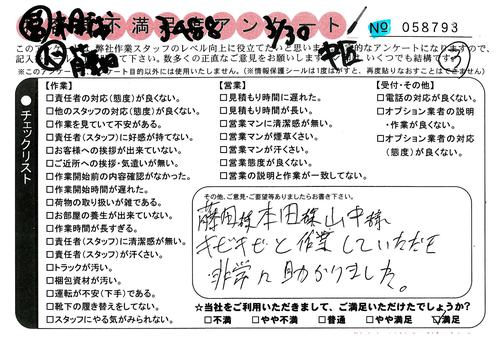 不満足度アンケート
3/30
No 058793
このアンケートは、弊社作業スタッフのレベル向上に役立てたいと思います
的なアンケートになりますので、
記入
下さい。数多くの正直なご意見をお願いします
いくつでも結構です
※このアンケート目的以外には使用いたしません。(※情報保護シールは1度はがすと、再度貼りなおすことはできません)
チェックリスト
【作業】
□責任者の対応(態度)が良くない。
□他のスタッフの対応(態度)が良くない。
□作業を見ていて不安がある。
□責任者(スタッフ)に好感が持てない。
□お客様への挨拶が出来ていない。
□ご近所への挨拶・気遣いが無い。
□作業開始前の内容確認がなかった。
□作業開始時間が遅れた。
□荷物の取り扱いが雑である。
□お部屋の養生が出来ていない。
□作業時間が長すぎる。
□責任者(スタッフ)に清潔感が無い。
□責任者(スタッフ)が汗くさい。
□トラックが汚い。
□梱包資材が汚い。
□運転が不安(下手)である。
□靴下の履き替えをしてない。
□スタッフにやる気がみられない。
【営業】
□見積もり時間に遅れた。
□見積もり時間が長い。
□営業マンに清潔感が無い。
□営業マンが煙草くさい。
□営業マンが汗くさい。
□営業態度が良くない。
□営業の説明と作業が一致してない。
【受付・その他】
□電話の対応が良くない。
□オプション業者の説明
・作業が良くない。
□オプション業者の対応
(態度)が良くない。
その他、ご意見・ご要望等ありましたらお書き下さい。
藤田様本田様山中様
キビキビと作業していただき
非常に助かりました。
☆当社をご利用いただきまして、ご満足いただけたでしょうか?
□不満 □やや不満 □普通 □やや満足 ☑満足